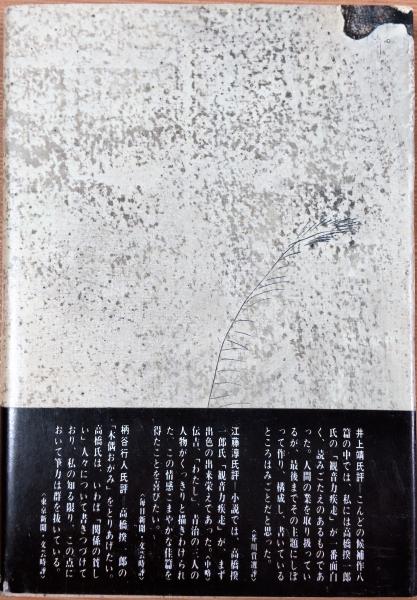 井上靖氏評―こんどの候補作八
篇の中では、私には高橋揆一郎
氏の「観音力疾走」が一番面白
く、読みごたえのあるものであ
った。人間の業を取り扱ってい
るが、最後までその主題にしぼ
って作り、構成し、書いている
ところはみごとだと思った。
〈芥川賞選評〉
江藤淳氏評―小説では、高橋揆
一郎氏「観音力疾走」が、まず
出色の出来栄えであった。〈中略〉
伝吉の「わたし」、吉治の二人の
人物がくっきりと描きわけられ
た、この情感こまやかな佳篇を
得たことを喜びたい。
〈毎日新聞・文芸時評〉
柄谷行人氏評―高橋揆一郎の
「木偶おがみ」をとりあげたい。
高橋氏は、いわば〝関係の貧し
い〟人々について書きつづけて
おり、私の知る限り、この点に
おいて筆力は群を抜いている。
〈東京新聞・文芸時評〉